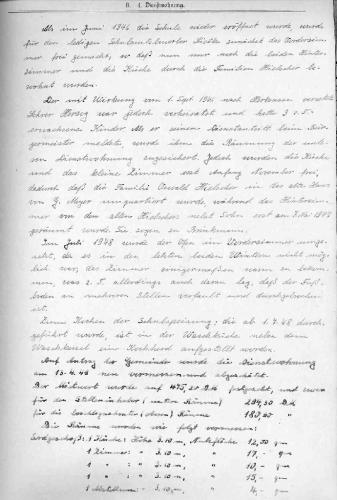 B. 4. Dienstwohnung.
Als im Juni 1946 die Schule wieder eröffnet wurde wurde
für den ledigen Schulamtsbewerber zunächst das Vorderzim-
mer frei gemacht, so daß nun nur noch die beiden Hinter-
zimmer und die Küche durch die Familie Hielscher be-
wohnt wurden.
Der mit Wirkung vom 1. Sept. nach versetzte
Lehrer Herzog war jedoch verheiratet und hatte 3
erwachsene Kinder. Als er seinen Dienstantritt beim Bür-
germeister meldete, wurde ihm die Räumung der
Dienstwohnung zugesichert. Jedoch wurden die Küche
und das kleine Zimmer erst Anfang November frei,
dadurch daß die Familie Oswald Hielscher in das alte Haus
von G. Meyer umquartiert wurde, während das Hinterzim-
mer von den alten Hielschers nebst Sohn erst am 1948
geräumt wurde. Sie zogen zu Brinkmann.
Im Juli 1948 wurde der Ofen im Vorderzimmer umge-
setzt, da es in den letzten beiden Wintern nicht mög-
lich war, das Zimmer einigermaßen warm zu bekom-
men, was z. T. allerdings auch daran lag, daß der Fuß-
boden an mehreren Stellen verfault und durchgebrochen
ist.
Zum Kochen der Schulspeisung, die ab 1. 4. 48 durch-
geführt wurde, ist in der Waschküche neben dem
Waschkessel ein Kochherd aufgestellt worden.
Auf Antrag der Gemeinde wurde die Dienstwohnung
am 13.4.48 neu vermessen und abgeschätzt.
Der Mietwert wurde auf 475,50 DM festgesetzt, und zwar
für den Stelleninhaber (untere Räume) 294,50 DM
für die (obere) Räume "
Die Räume wurden wie folgt vermessen:
Erdgeschoß: 1 Küche: Höhe 3.10 m, Nutzfläche 12,50 qm
1 Zimmer: " 3.10 m, " 17,- qm
1 " : " 3.10 m, " 10,- qm
1 " : " 3.10 m, " 15,- qm
1 : " 3.10 m, " 4,- qm